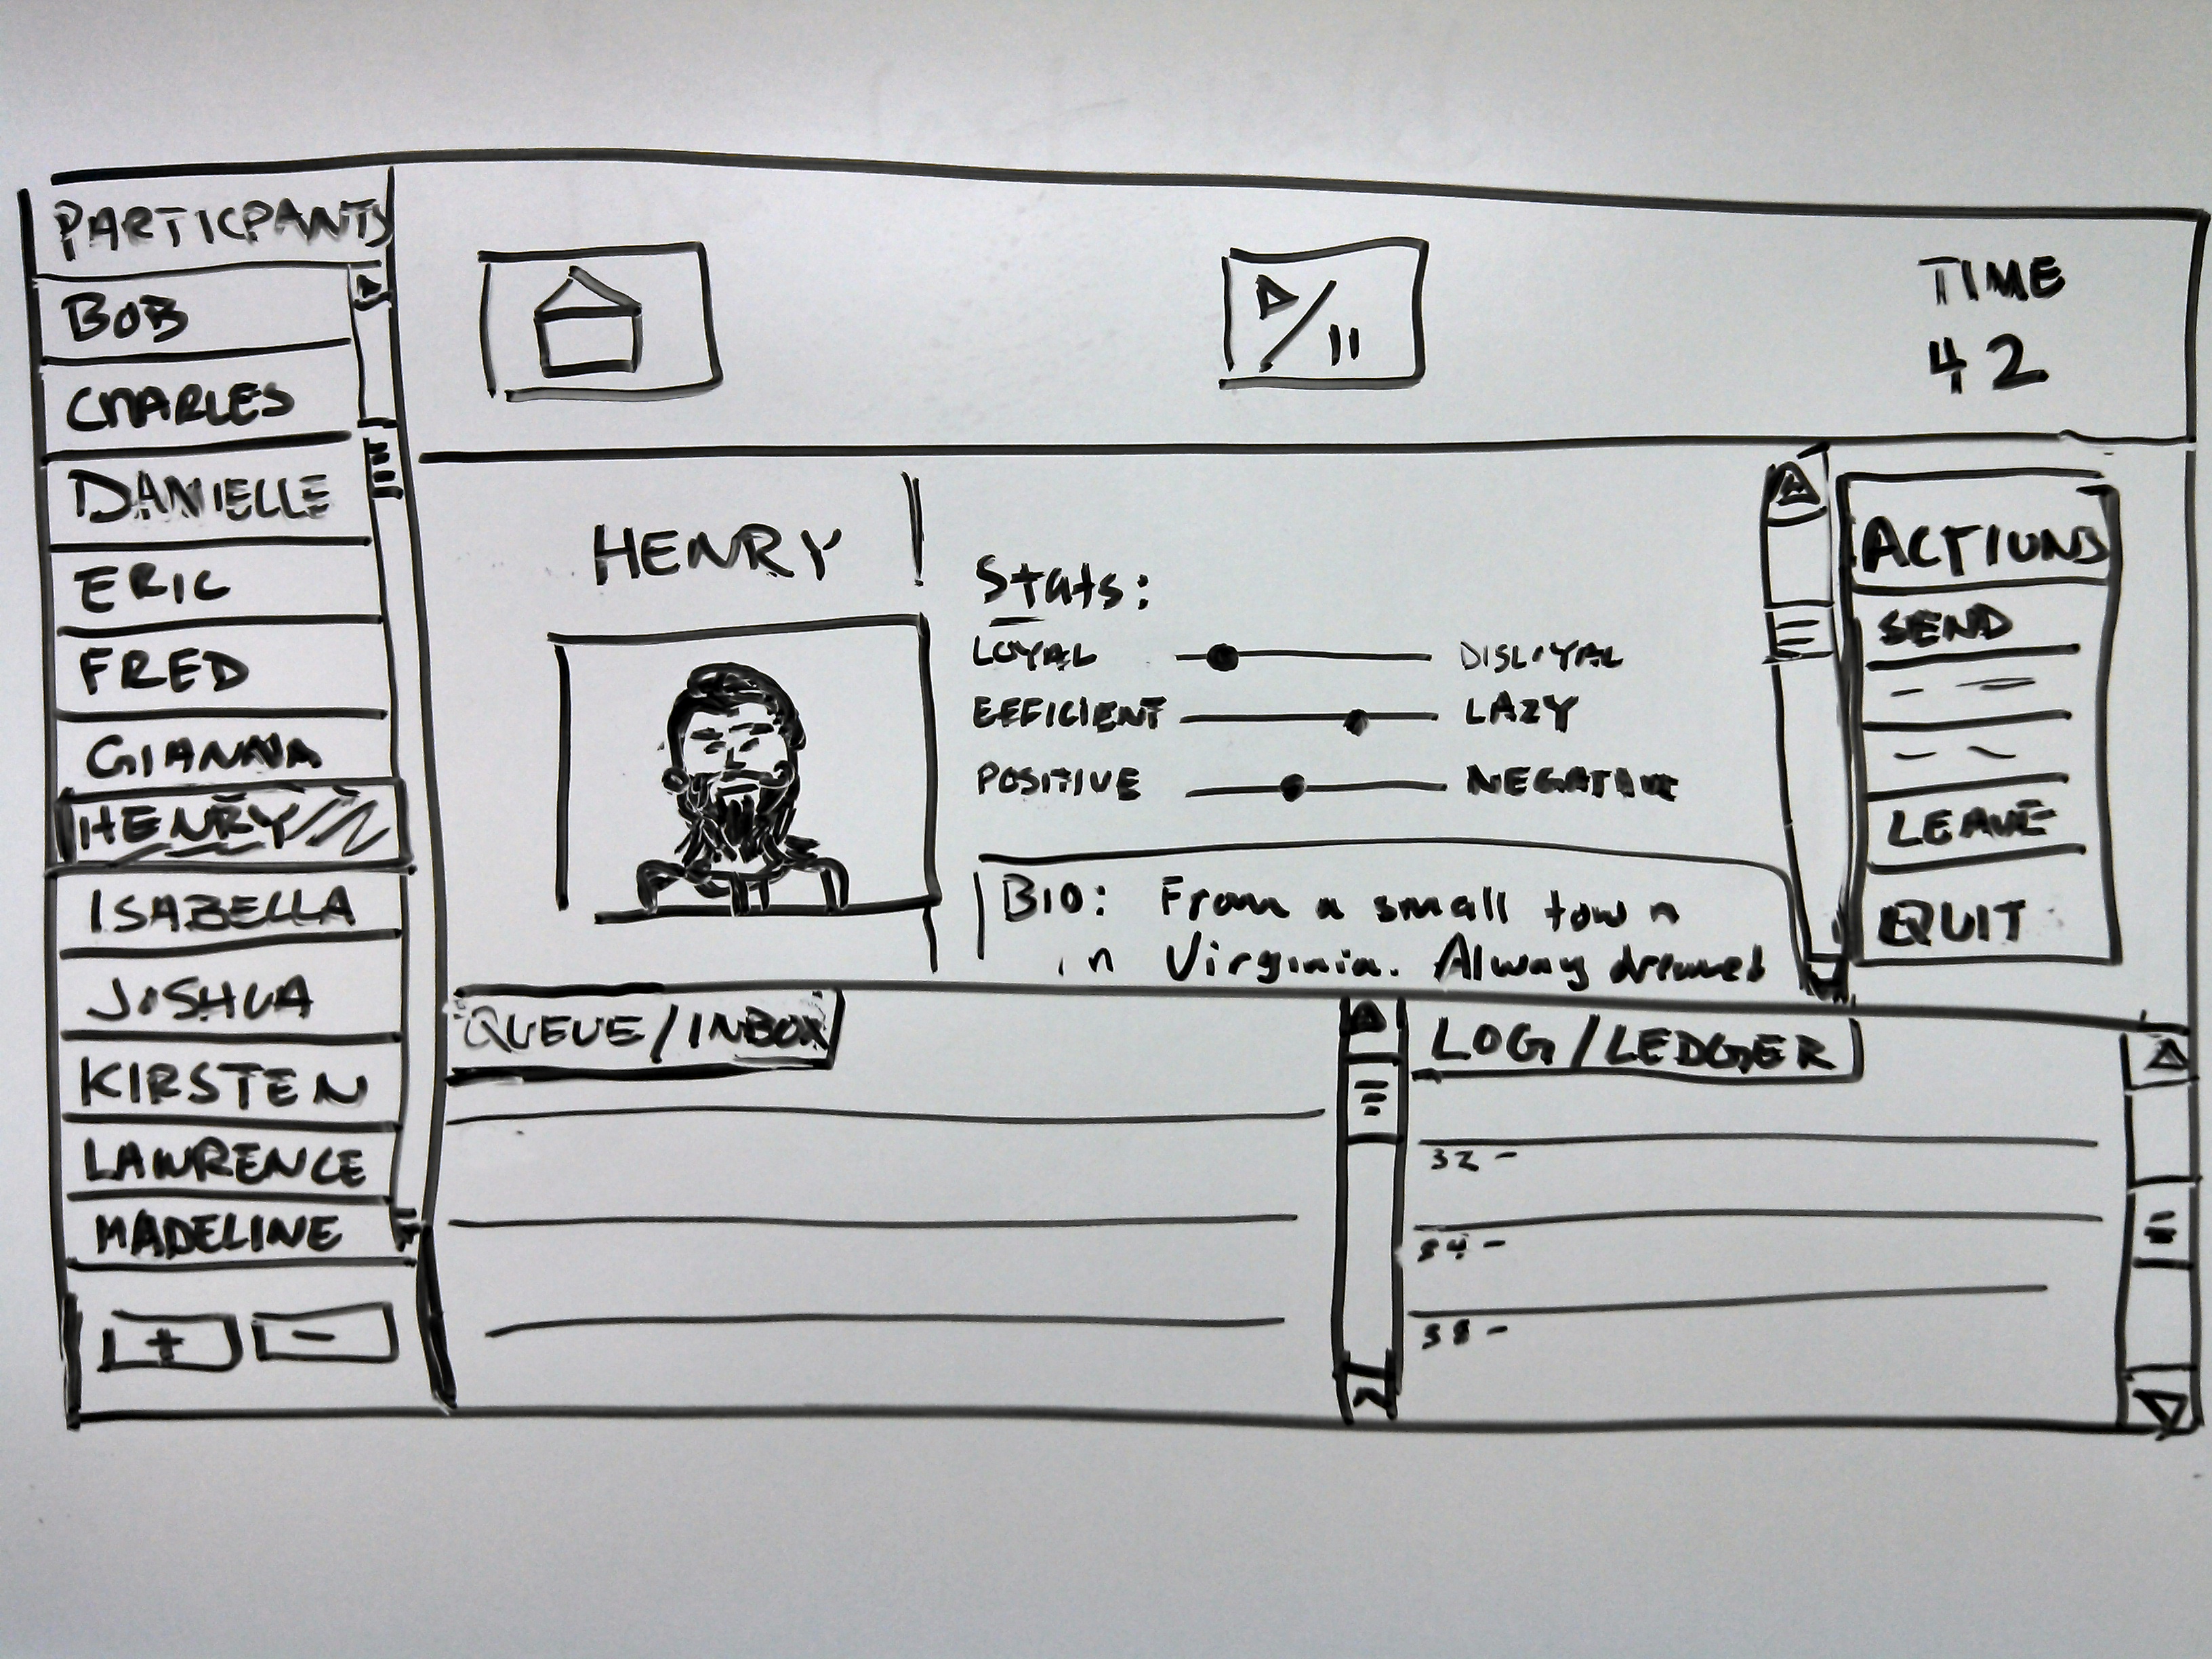 PARTICPANTS
BOB
CHARLES
DANIELLE
ERIC
FRED
GIANNA
HENRY
ISABELLA
JOSHUA
KIRSTEN
LAWRENCE
MADELINE
+ -
TIME
42
HENRY
Stats:
LOYAL DISLOYAL
EFFICIENT LAZY
POSITIVE NEGATIVE
BIO: From a small town
in Virginia. Always dreamed
ACTIONS
SEND
LEAVE
QUIT
QUEUE/INBOX
LOG/LEDGER
32 -
34 -
38 -